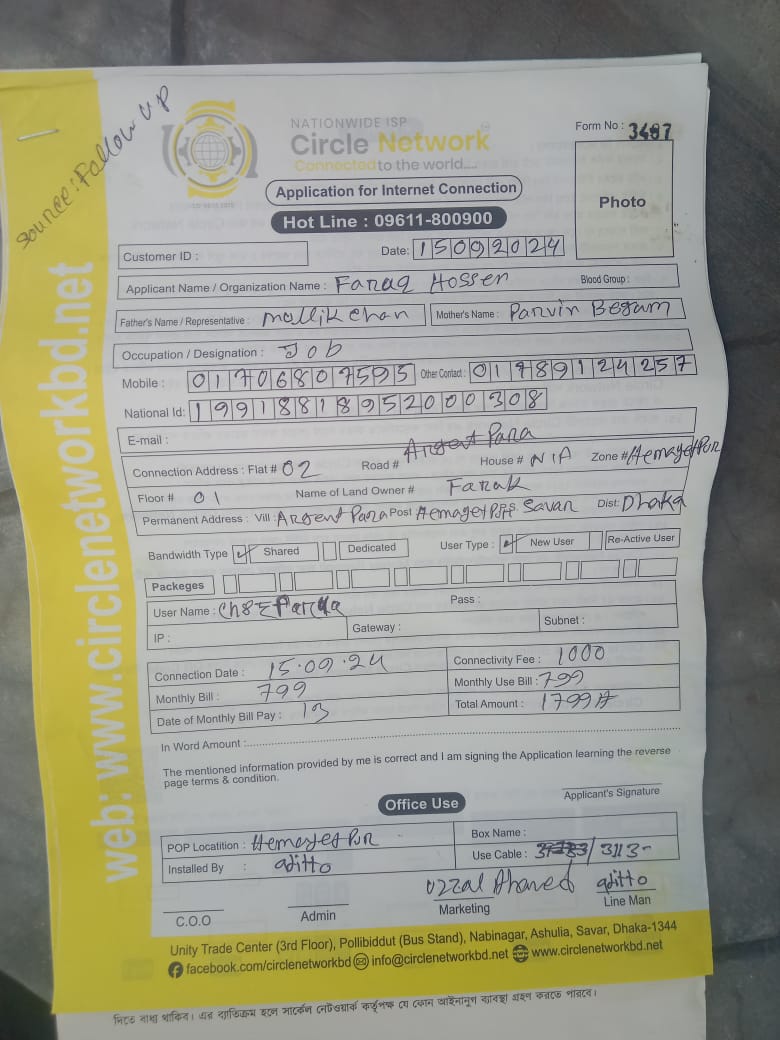 Source: Follow UP
NATIONWIDE ISP
Circle Network
Connected to the world....
Form No : 3487
Application for Internet Connection
Photo
Hot Line : 09611-800900
Customer ID :
Date: 15092024
Applicant Name / Organization Name : Faraq Hossen
Blood Group :
Father's Name / Representative : mallik chan
Mother's Name : Parvin Begam
Occupation / Designation : Job
Mobile : 01706807595 Other Contact : 01789124257
National Id: 19918818952000308
E-mail :
Connection Address : Flat # 02 Road # Argent Para House # N/A Zone # Hemayet Pur
Floor # 01 Name of Land Owner # Farak
Permanent Address : Vill : Argent Para Post Hemayet Savar Dist: Dhaka
Bandwidth Type Shared Dedicated User Type : New User Re-Active User
Packeges
User Name : Pass :
IP : Gateway : Subnet :
Connection Date : 15.09.24 Connectivity Fee : 1000
Monthly Bill : 799 Monthly Use Bill : 799
Date of Monthly Bill Pay : 13 Total Amount : 1799
In Word Amount :
The mentioned information provided by me is correct and I am signing the Application learning the reverse
page terms & condition.
Applicant's Signature
Office Use
POP Locatition : Hemayet Pur Box Name :
Installed By : aditto Use Cable : 3113-
Uzzal Ahamed aditto
C.O.O Admin Marketing Line Man
Unity Trade Center (3rd Floor), Pollibiddut (Bus Stand), Nabinagar, Ashulia, Savar, Dhaka-1344
facebook.com/circlenetworkbd info@circlenetworkbd.net www.circlenetworkbd.net
web: www.circlenetworkbd.net
দিতে বাধ্য থাকিব। এর ব্যতিক্রম হলে সার্কেল নেটওয়ার্ক কর্তৃপক্ষ যে কোন আইনানুগ ব্যবস্থা গ্রহণ করতে পারবে।